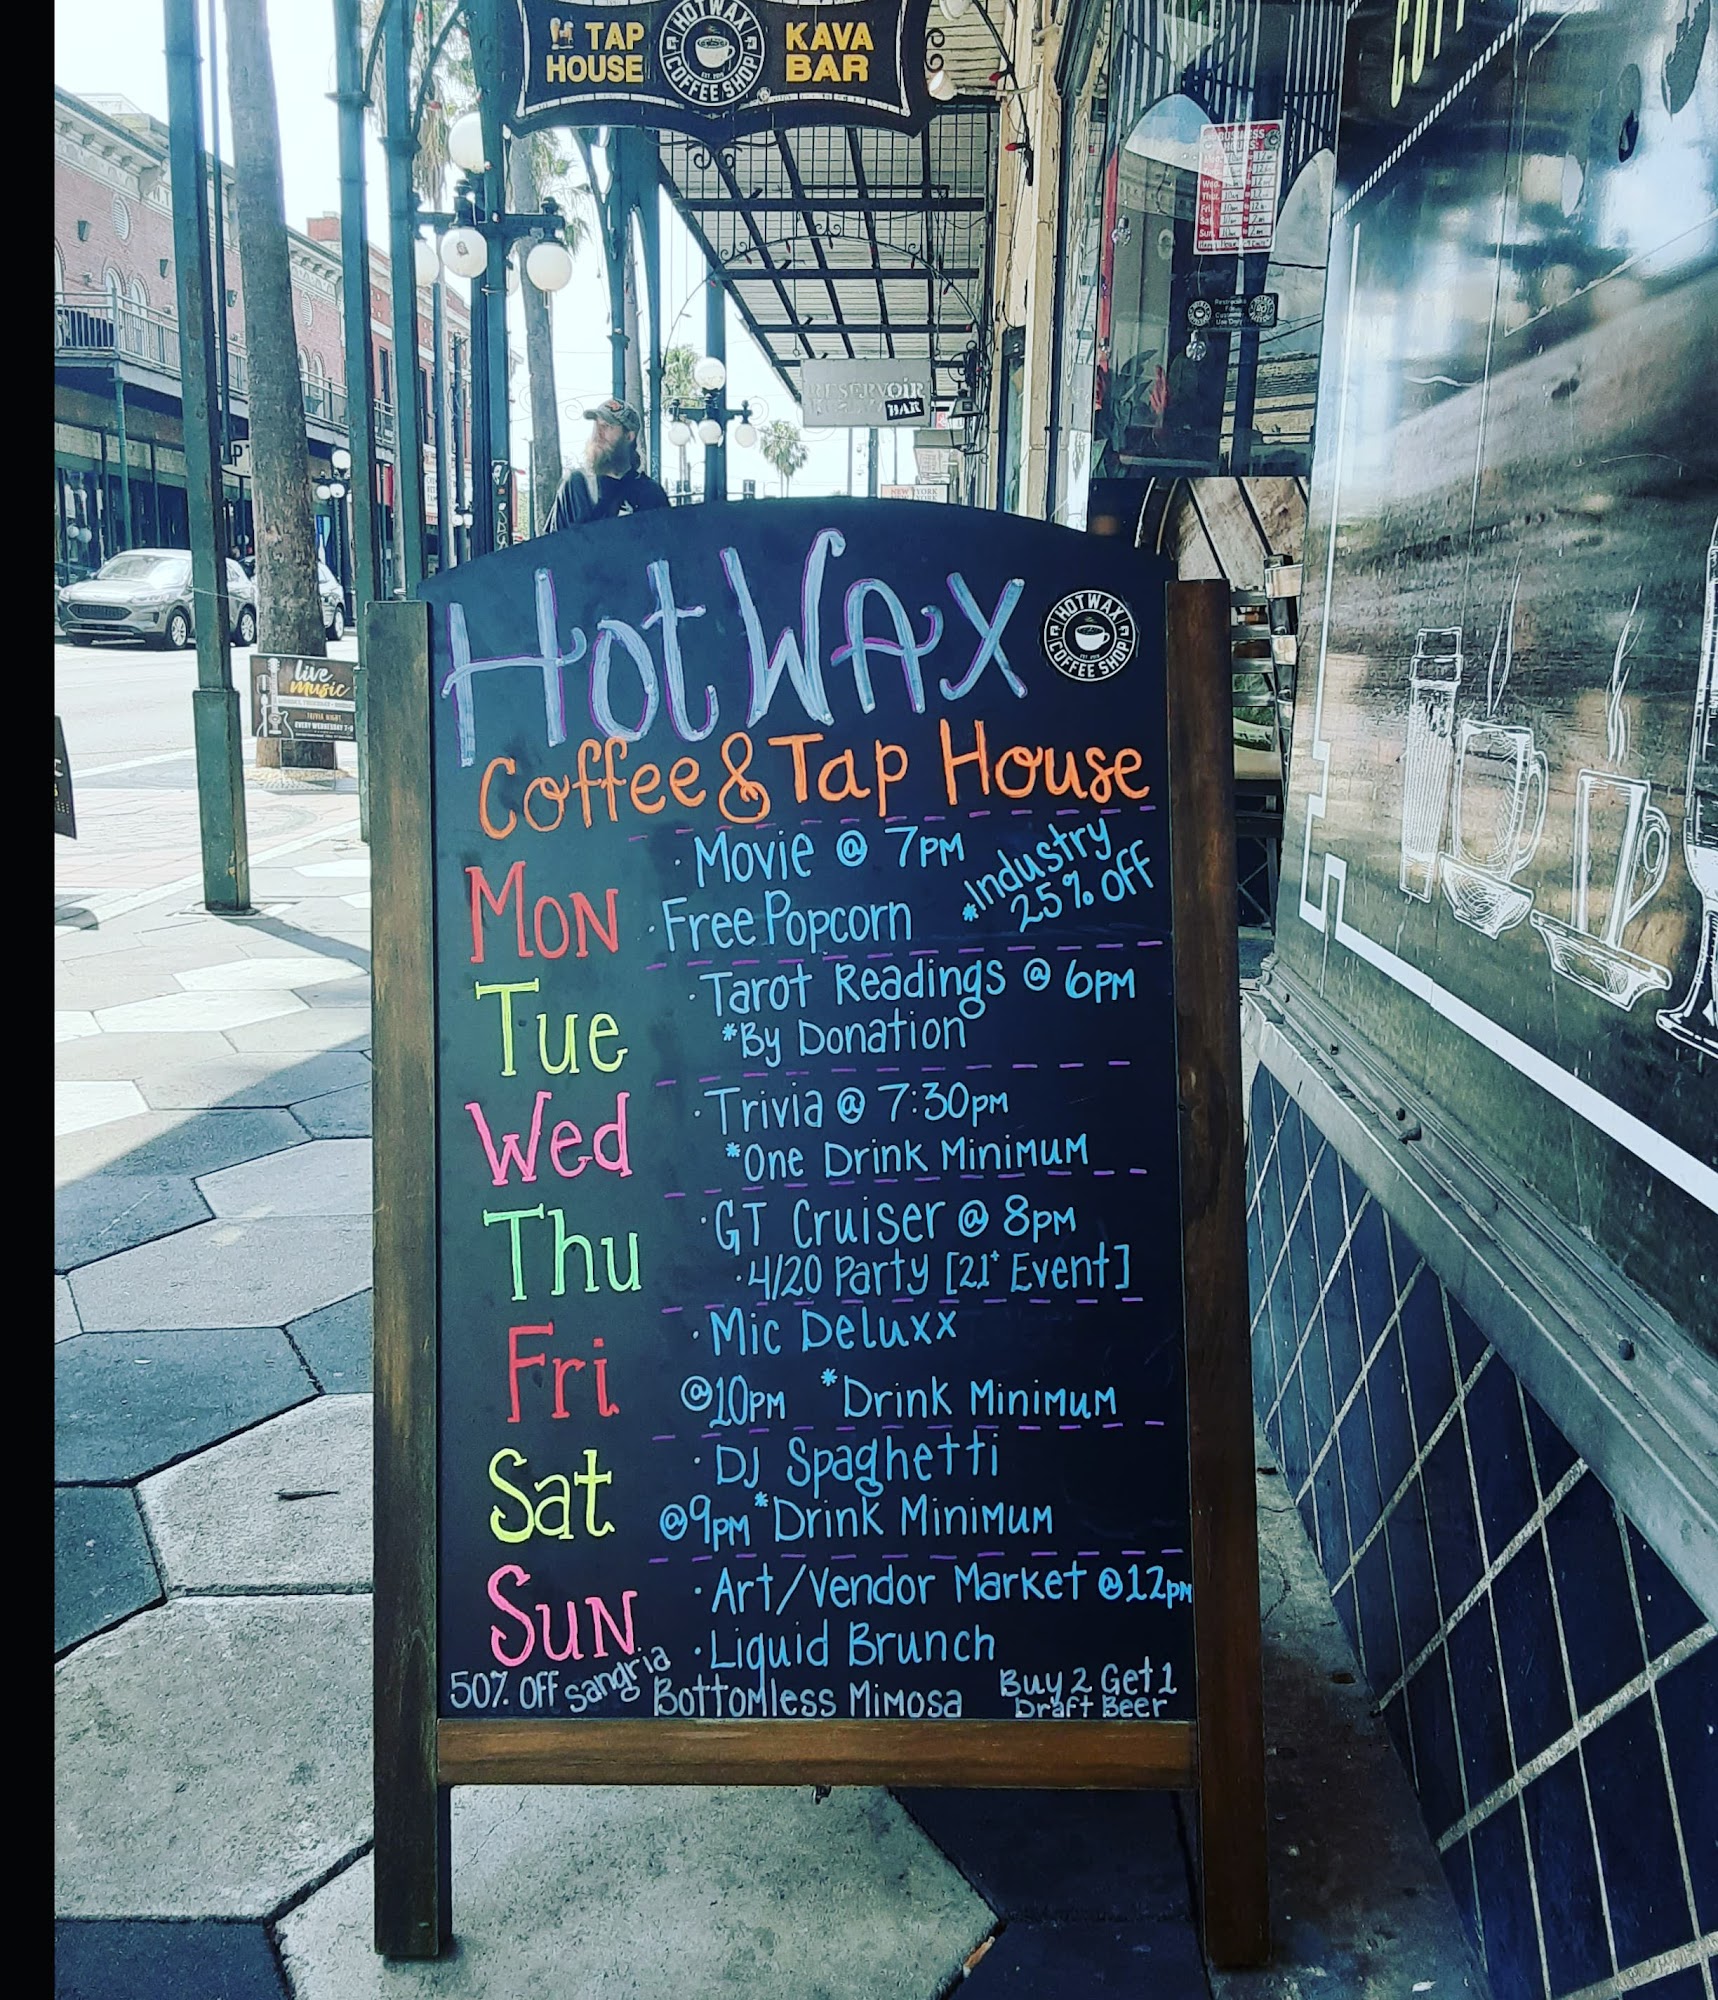 TAP HOUSE
HOTWAX COFFEE SHOP
EST. 2015
KAVA BAR
RESERVOIR
BAR
NEW YORK
BUSINESS HOURS:
Restrooms For Customer Use Only
live music
TRIVIA NIGHT
EVERY WEDNESDAY 7-9
HotWax
HOTWAX COFFEE SHOP
Coffee & Tap House
Mon
· Movie @ 7pm
· Free Popcorn
*Industry 25% off
Tue
· Tarot Readings @ 6pm
*By Donation
Wed
· Trivia @ 7:30pm
*One Drink Minimum
Thu
· GT Cruiser @ 8pm
· 4/20 Party [21+ Event]
Fri
· Mic Deluxx
@10pm *Drink Minimum
Sat
· DJ Spaghetti
@9pm *Drink Minimum
Sun
· Art/Vendor Market @12pm
· Liquid Brunch
50% off sangria
Bottomless Mimosa
Buy 2 Get 1
Draft Beer